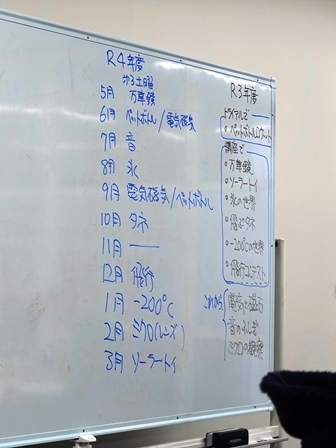 R4年度
第3土曜
5月 万華鏡
6月 ペットボトル/電気磁気
7月 音
8月 氷
9月 電気磁気/ペットボトル
10月 タネ
11月 ——
12月 飛行
1月 -200℃
2月 ミクロ(レンズ)
3月 ソーラートイ
R3年度
トライアルで
・ペットボトルロケット
講座で
・万華鏡
・ソーラートイ
・氷の世界
・飛ぶタネ
・-200℃の世界
・飛行コンテスト
これから
電気と磁石
音のふしぎ
ミクロの観察